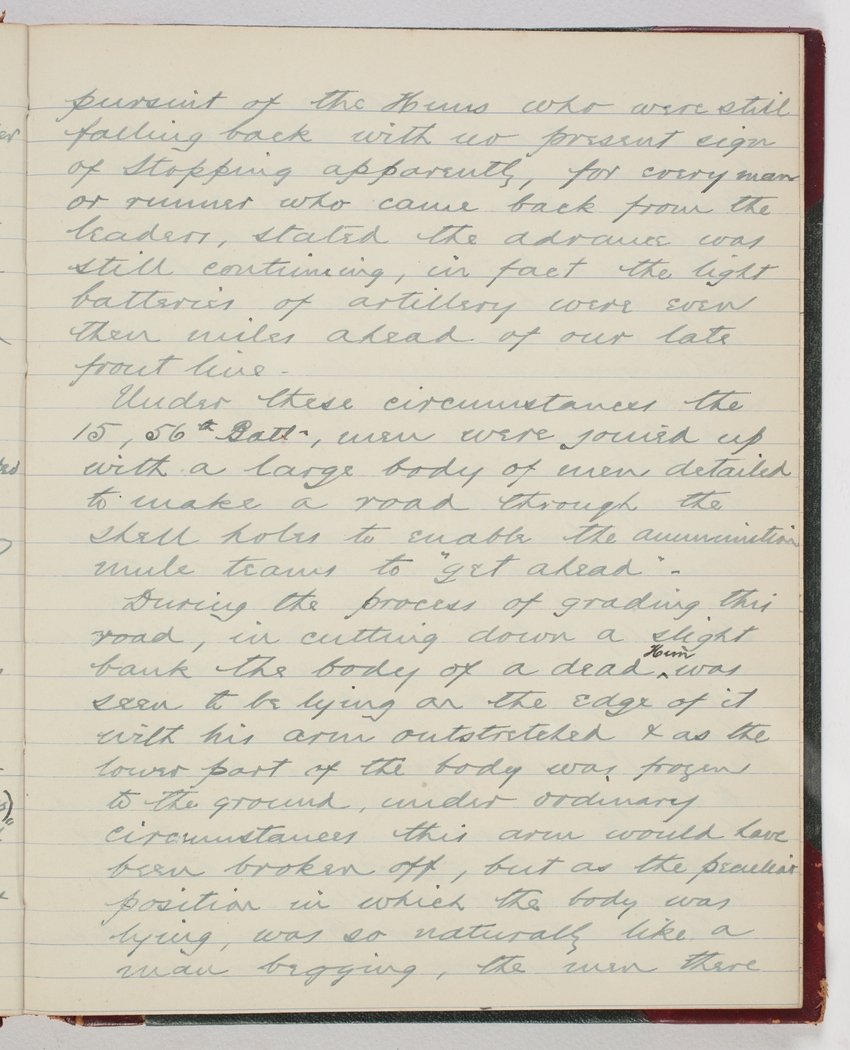 pursuit of the Huns who were still
falling back with no present sign
of stopping apparently, for every man
or runner who came back from the
leaders, stated the advance was
still continuing, in fact the light
batteries of artillery were even
then miles ahead of our late
front line -
Under these circumstances the
15, 56th Batt-, men were joined up
with a large body of men detailed
to make a road through the
shell holes to enable the ammunition
mule teams to "get ahead" -
During the process of grading this
road, in cutting down a slight
bank the body of a dead ^Hun was
seen to be lying on the edge of it
with his arm outstretched & as the
lower part of the body was frozen
to the ground, under ordinary
circumstances this arm would have
been broken off, but as the peculiar
position in which the body was
lying, was so naturally like a
man begging, the men there